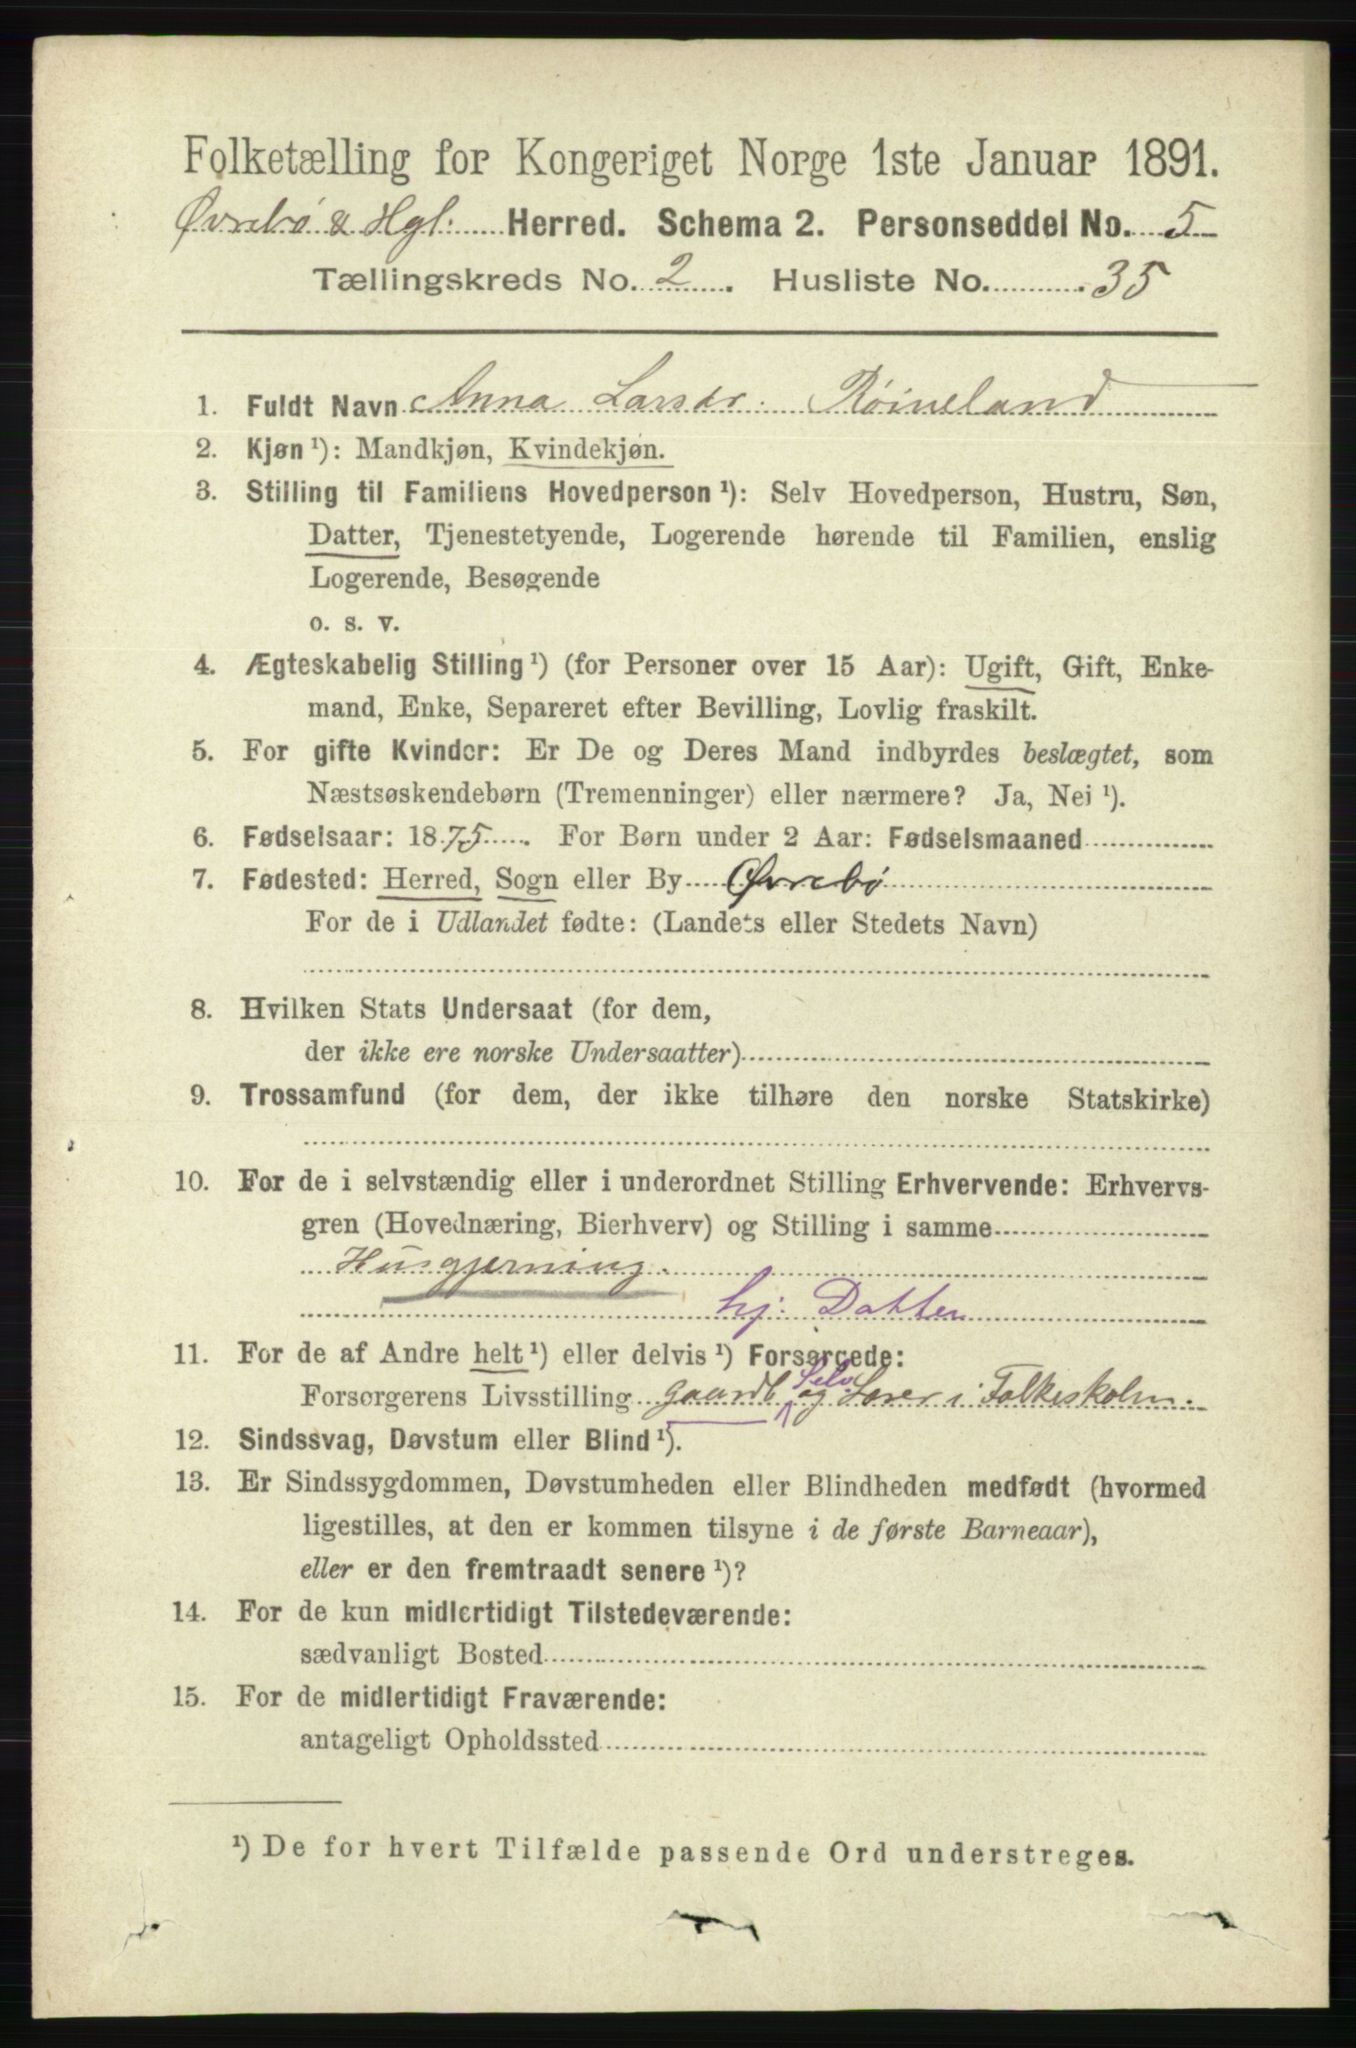 Folketælling for Kongeriget Norge 1ste Januar 1891.
Øvrebø & Hgl: Herred. Schema 2. Personseddel No. 5
Tællingskreds No. 2. Husliste No. 35
1. Fuldt Navn Anna Larsdr. Røineland
2. Kjøn ¹): Mandkjøn, Kvindekjøn.
3. Stilling til Familiens Hovedperson ¹): Selv Hovedperson, Hustru, Søn,
Datter, Tjenestetyende, Logerende hørende til Familien, enslig
Logerende, Besøgende
o. s. v.
4. Ægteskabelig Stilling ¹) (for Personer over 15 Aar): Ugift, Gift, Enke-
mand, Enke, Separeret efter Bevilling, Lovlig fraskilt.
5. For gifte Kvinder: Er De og Deres Mand indbyrdes beslægtet, som
Næstsøskendebørn (Tremenninger) eller nærmere? Ja, Nei ¹).
6. Fødselsaar: 1875. For Børn under 2 Aar: Fødselsmaaned
7. Fødested: Herred, Sogn eller By Øvrebø
For de i Udlandet fødte: (Landets eller Stedets Navn)
8. Hvilken Stats Undersaat (for dem,
der ikke ere norske Undersaatter)
9. Trossamfund (for dem, der ikke tilhøre den norske Statskirke)
10. For de i selvstændig eller i underordnet Stilling Erhvervende: Erhvervs-
gren (Hovednæring, Bierhverv) og Stilling i samme
Husgjerning.
hj: Datter
11. For de af Andre helt ¹) eller delvis ¹) Forsørgede:
Selv
Forsørgerens Livsstilling Gaardb og Lærer i Folkeskolen.
12. Sindssvag, Døvstum eller Blind ¹).
13. Er Sindssygdommen, Døvstumheden eller Blindheden medfødt (hvormed
ligestilles, at den er kommen tilsyne i de første Barneaar),
eller er den fremtraadt senere ¹)?
14. For de kun midlertidigt Tilstedeværende:
sædvanligt Bosted
15. For de midlertidigt Fraværende:
antageligt Opholdssted
¹) De for hvert Tilfælde passende Ord understreges.